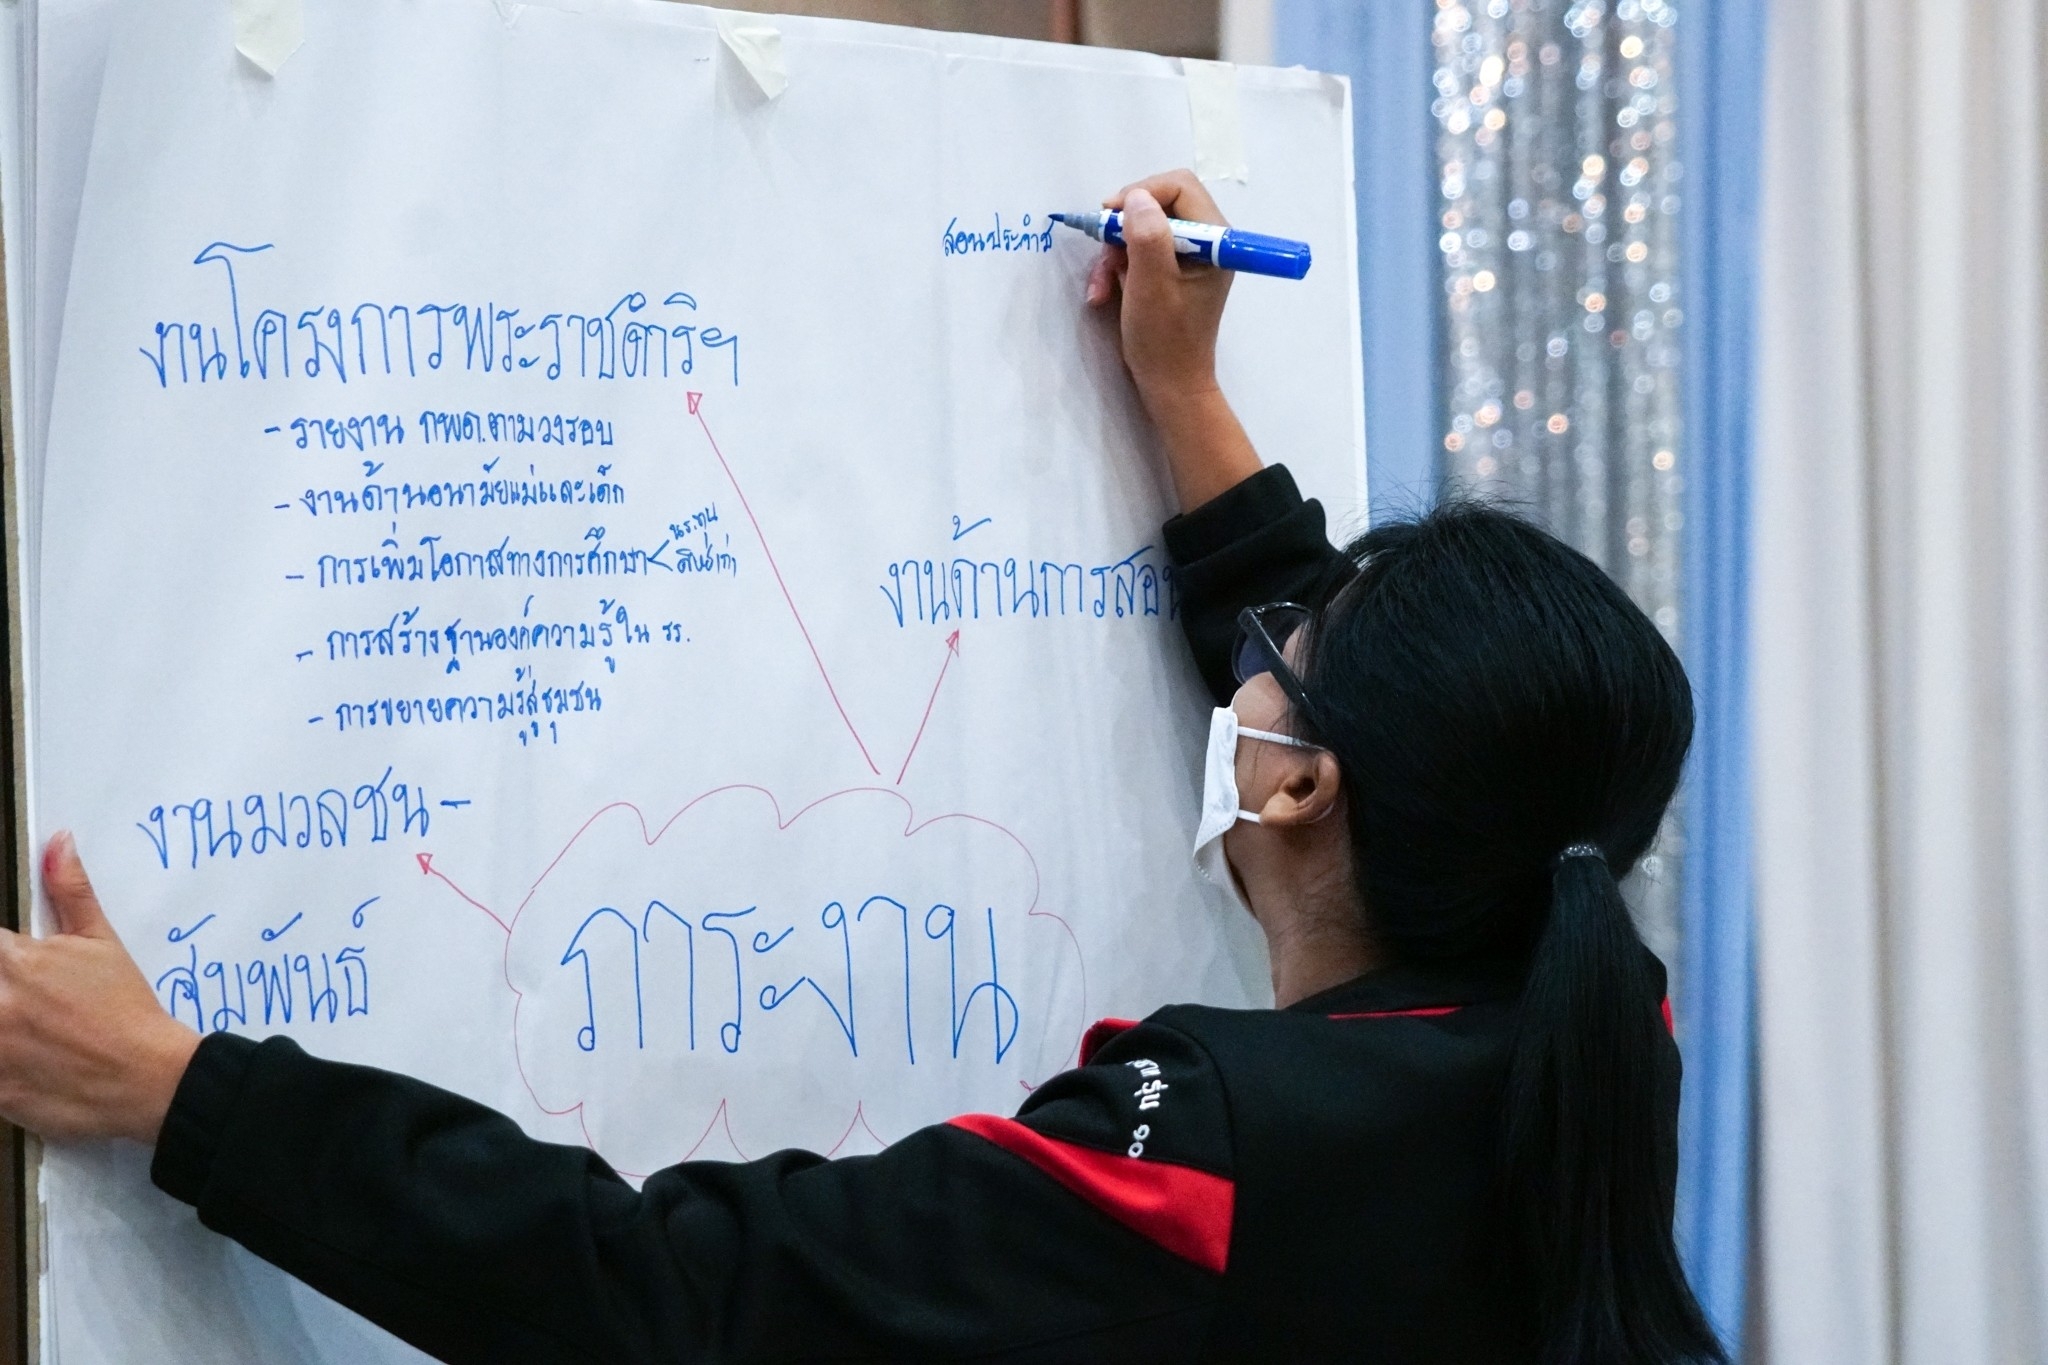 สอนประจำช
งานโครงการพระราชดำริฯ
- รายงาน กพด.ตามวงรอบ
- งานด้านอนามัยแม่และเด็ก
- การเพิ่มโอกาสทางการศึกษา < นร.ทุน
ศิษย์เก่า
- การสร้างฐานองค์ความรู้ใน รร.
- การขยายความรู้สู่ชุมชน
งานด้านการสอน
งานมวลชน -
สัมพันธ์
ภาระงาน
รุ่น ๑๐